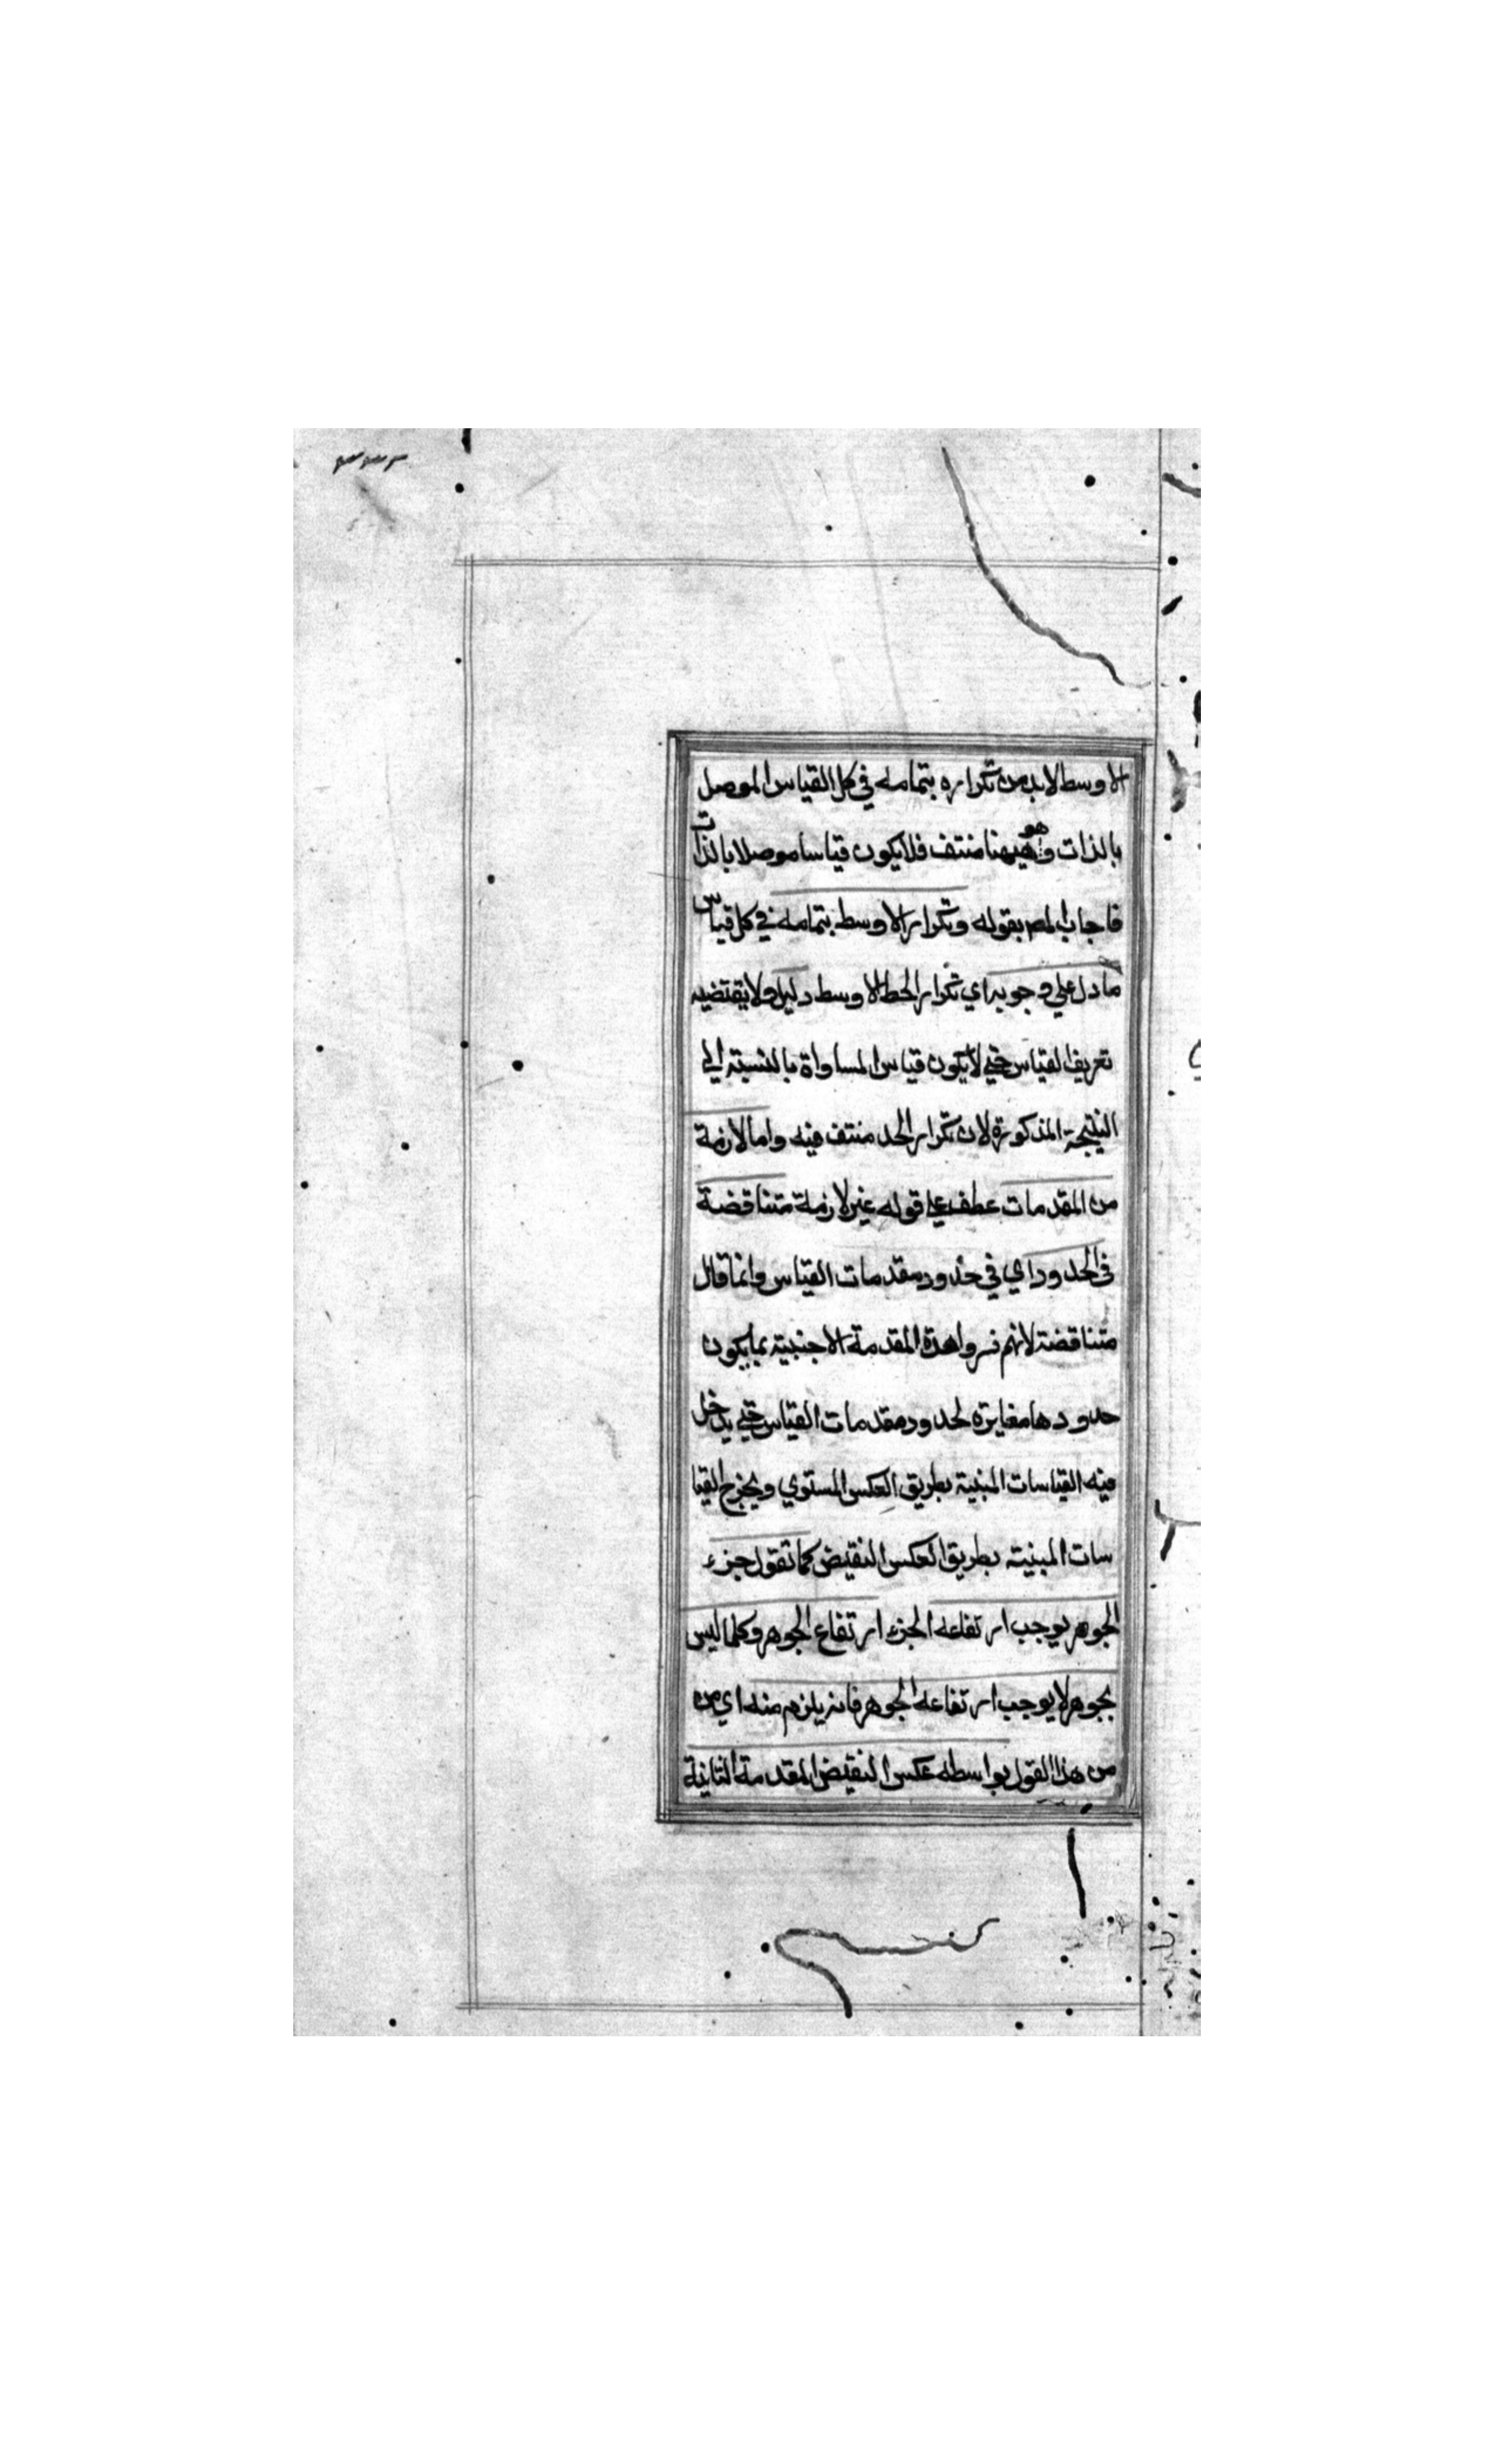 الاوسط لابد من تكراره بتمامه في كل القياس الموصل
بالذات وهو هيهنا منتف فلا يكون قياسا موصلا بالذات
فاجاب المص بقوله وتكرار الاوسط بتمامه في كل قياس
ما دل علي وجوبه اي تكرار الحط الاوسط دليل ولا يقتضيه
تعريف القياس حتي لا يكون قياس المساواة بالنسبة الي
النتيجة المذكورة لان تكرار الحد منتف فيه واما لازمة
من المقدمات عطف علي قوله غير لازمة متناقضة
في الحدود اي في حدود مقدمات القياس وانما قال
متناقضة لانهم فسروا هذه المقدمة الاجنبية بما يكون
حدودها مغايرة لحدود مقدمات القياس حتي يدخل
فيه القياسات المبنية بطريق العكس المستوي ويخرج القيا
سات المبنية بطريق العكس النقيض كما تقول جزء
الجوهر يوجب ارتفاعه الجزء ارتفاع الجوهر وكلما ليس
بجوهر لا يوجب ارتفاعه الجوهر فانه يلزم منه اي من
من هذا القول بواسطه عكس النقيض المقدمة الثانية